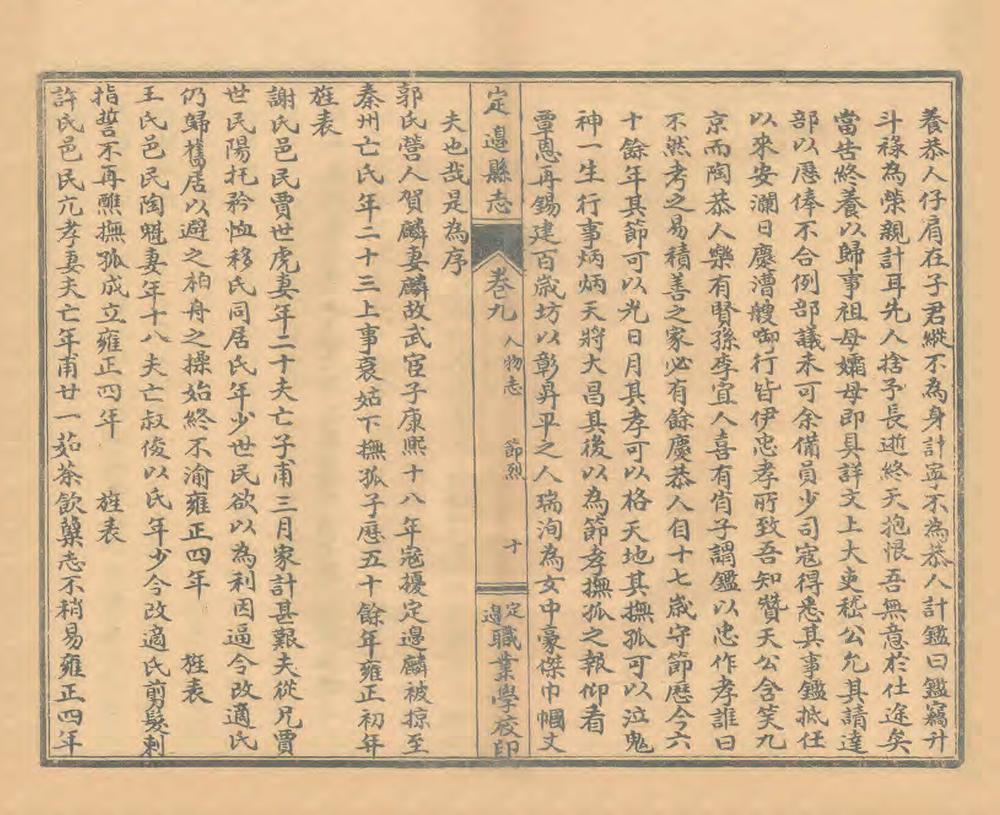 養恭人仔肩在子君縱不為身計寧不為恭人計鑑曰鑑竊升
斗祿為榮親計耳先人捨予長逝終天抱恨吾無意於仕途矣
當告終養以歸事祖母孀母即具詳文上大吏嵇公允其請達
部以應俸不合例部議未可余備員少司寇得悉其事鑑抵任
以來安瀾日慶漕艘啣行皆伊忠孝所致吾知贊天公含笑九
京而陶恭人樂有賢孫李宜人喜有肖子謂鑑以忠作孝誰曰
不然考之易積善之家必有餘慶恭人自十七歲守節歷今六
十餘年其節可以光日月其孝可以格天地其撫孤可以泣鬼
神一生行事炳炳天將大昌其後以為節孝撫孤之報仰看
覃恩再錫建百歲坊以彰昇平之人瑞洵為女中豪傑巾幗丈
夫也哉是為序
定邊縣志
卷九
人物志
節烈
十
定邊職業學校印
郭氏營人賀麟妻麟故武宦子康熙十八年寇擾定邊麟被掠至
秦州亡氏年二十三上事衰姑下撫孤子歷五十餘年雍正初年
旌表
謝氏邑民賈世虎妻年二十夫亡子甫三月家計甚艱夫從兄賈
世民陽托矜恤移氏同居氏年少世民欲以為利因逼令改適氏
仍歸舊居以避之柏舟之操始終不渝雍正四年　旌表
王氏邑民陶魁妻年十八夫亡叔俊以氏年少令改適氏剪髮刺
指誓不再醮撫孤成立雍正四年　旌表
許氏邑民亢孝妻夫亡年甫廿一茹荼飲蘗志不稍易雍正四年